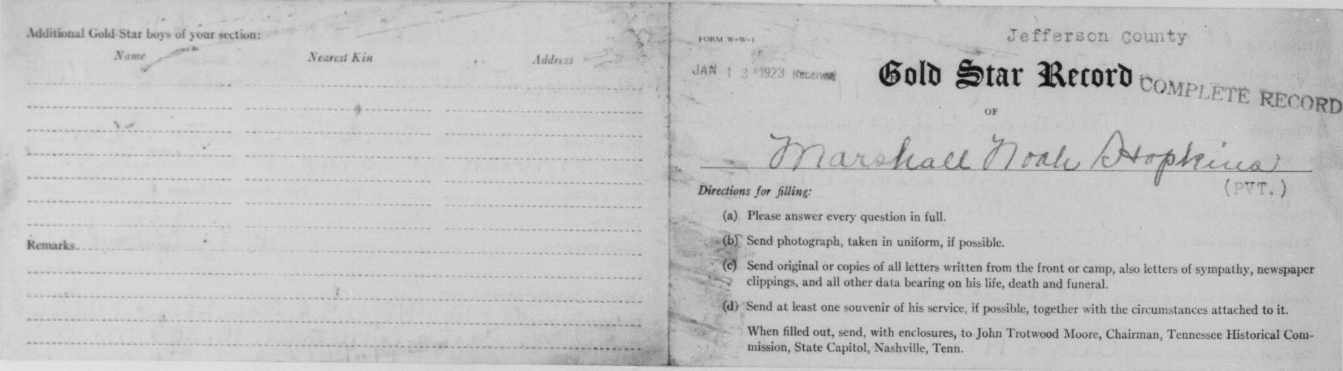 Additional Gold Star boys of your section:
Name Nearest Kin Address
Remarks
FORM W-W-1
Jefferson County
JAN 13 1923 Received
Gold Star Record
COMPLETE RECORD
OF
Marshall Noah Hopkins
(PVT.)
Directions for filling:
(a) Please answer every question in full.
(b) Send photograph, taken in uniform, if possible.
(c) Send original or copies of all letters written from the front or camp, also letters of sympathy, newspaper
clippings, and all other data bearing on his life, death and funeral.
(d) Send at least one souvenir of his service, if possible, together with the circumstances attached to it.
When filled out, send, with enclosures, to John Trotwood Moore, Chairman, Tennessee Historical Com-
mission, State Capitol, Nashville, Tenn.